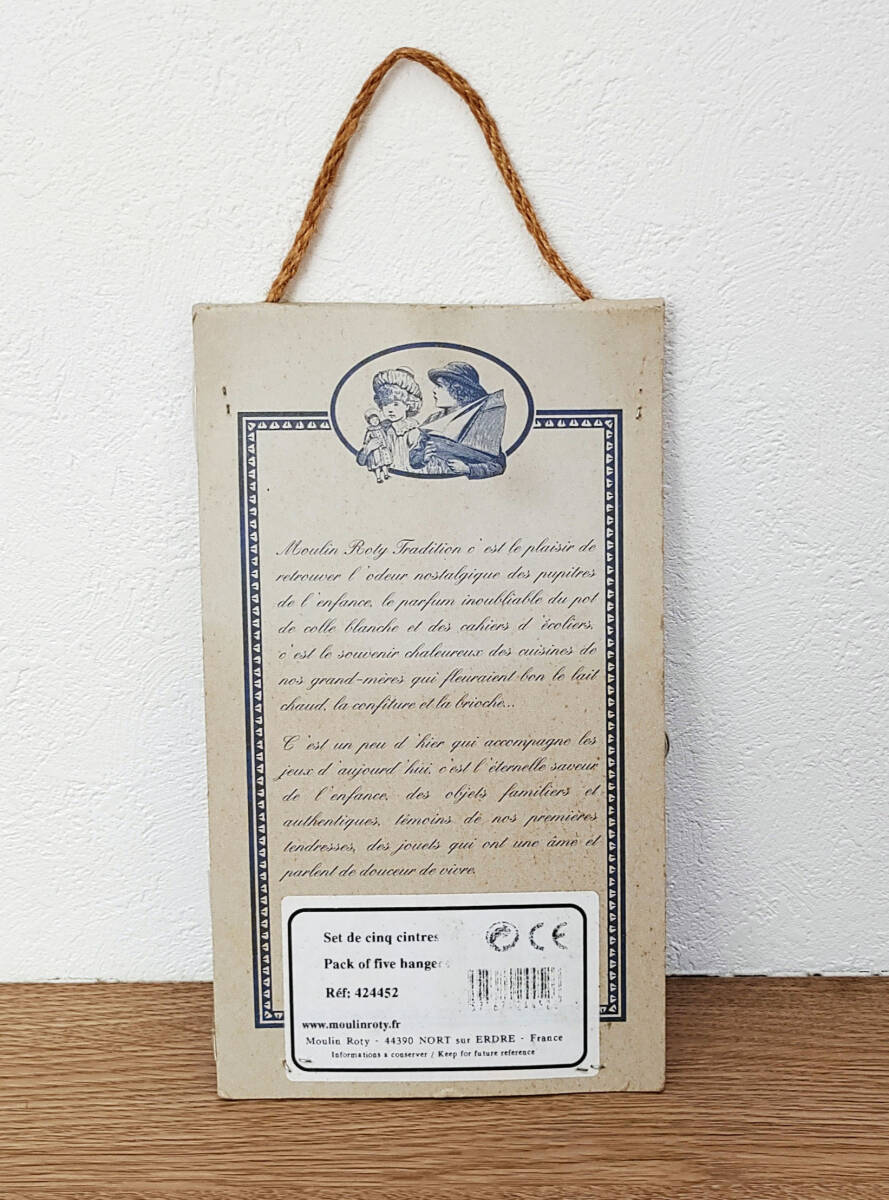 Moulin Roty Tradition c'est le plaisir de
retrouver l'odeur nostalgique des pupitres
de l'enfance, le parfum inoubliable du pot
de colle blanche et des cahiers d'écoliers,
c'est le souvenir chaleureux des cuisines de
nos grand-mères qui fleuraient bon le lait
chaud, la confiture et la brioche...
C'est un peu d'hier qui accompagne les
jeux d'aujourd'hui, c'est l'éternelle saveur
de l'enfance, des objets familiers et
authentiques, témoins de nos premières
tendresses, des jouets qui ont une âme et
parlent de douceur de vivre.
Set de cinq cintres
Pack of five hangers
Réf: 424452
CE
www.moulinroty.fr
Moulin Roty - 44390 NORT sur ERDRE - France
Informations a conserver / Keep for future reference